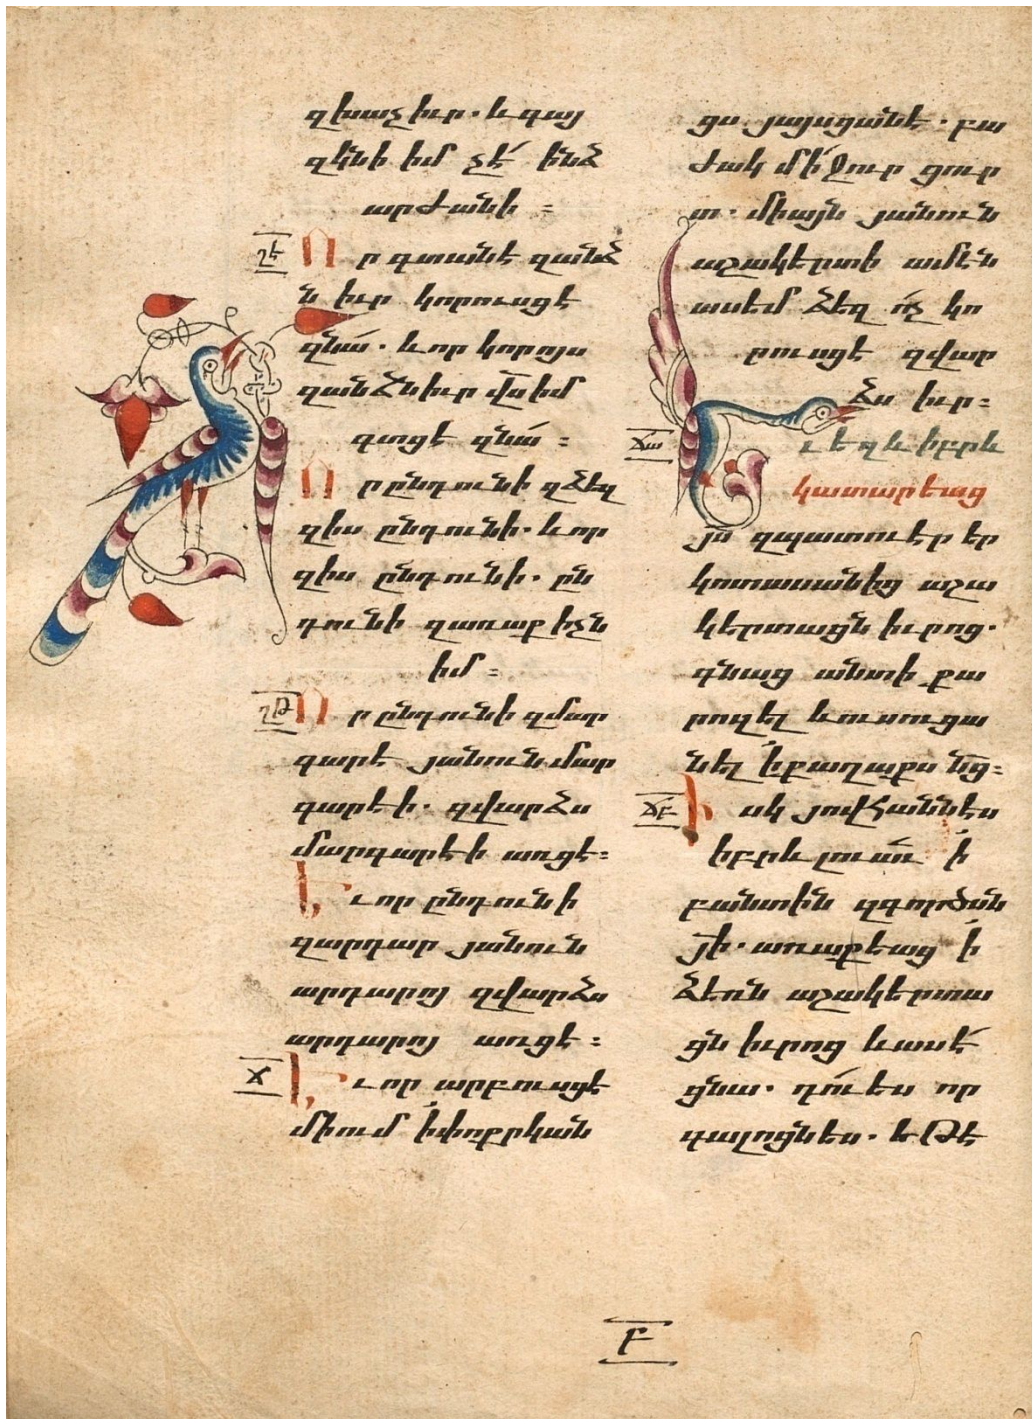 զխաչ իւր. և գայ
զկնի իմ չէ ինձ
արժանի ։
ղէ Ո ր գտանէ զանձ
ն իւր կորուսցէ
զնա՛. և որ կորոյս
զանձն իւր վս իմ
գտցէ զնա՛ ։
Ո ր ընդունի զձեզ
զիս ընդունի. և որ
զիս ընդունի. ըն
դունի զառաքիչն
իմ ։
ղթ Ո ր ընդունի զմար
գարէ յանուն մար
գարէի. զվարձս
մարգարէի առցէ։
Ե ւ որ ընդունի
զարդար յանուն
արդարոյ զվարձս
արդարոյ առցէ ։
ճ Ե ւ որ արբուսցէ
միում ի փոքրկան
ցս յայսցանէ. բա
ժակ մի ջուր ցուր
տ. միայն յանուն
աշակերտի ամէն
ասեմ ձեզ ո՛չ կո
րուսցէ զվար
ձս իւր։
ճա Ե ւ եղև իբրև
կատարեաց
յս զպատուէր եր
կոտասանից աշա
կերտացն իւրոց.
գնաց անտի քա
րոզել և ուսուցա
նել ի քաղաքս նց։
ճբ Ի սկ յովհաննէս
իբրև լուաւ ի
բանտին զգործսն
յի. առաքեաց ի
ձեռն աշակերտա
ցն իւրոց և ասէ
ցնա. դու ես որ
գալոցն ես. եթէ
Բ